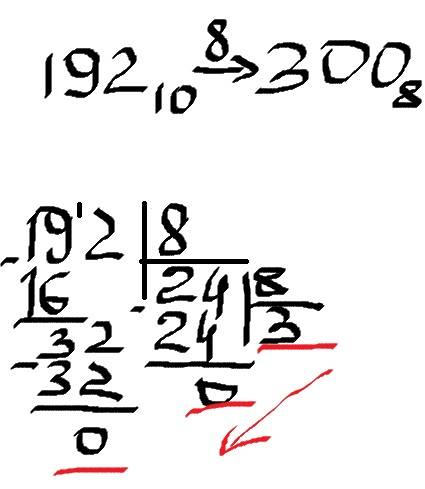 192₁₀ →⁸ 300₈
19'2 | 8
-16 | 24 | 8
32 - 24 | 3
-32 0
0